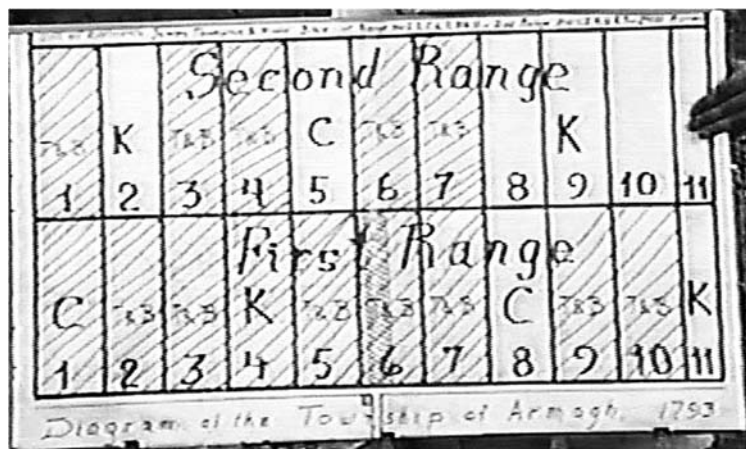 Second Range
T&B K T&B T&B C T&B T&B K
1 2 3 4 5 6 7 8 9 10 11
First Range
C T&B T&B K T&B T&B T&B C T&B T&B K
1 2 3 4 5 6 7 8 9 10 11
Diagram of the Township of Armagh. 1793